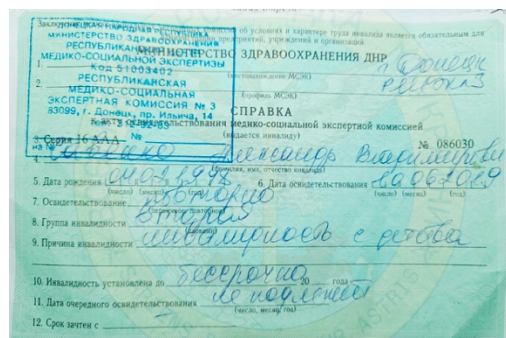 Заключение об условиях и характере труда инвалида является обязательным для
предприятий, учреждений и организаций.
ДОНЕЦКАЯ НАРОДНАЯ РЕСПУБЛИКА
МИНИСТЕРСТВО ЗДРАВООХРАНЕНИЯ
РЕСПУБЛИКАНСКИЙ
МЕДИКО-СОЦИАЛЬНОЙ ЭКСПЕРТИЗЫ
Код 51003402
РЕСПУБЛИКАНСКАЯ
МЕДИКО-СОЦИАЛЬНАЯ
ЭКСПЕРТНАЯ КОМИССИЯ № 3
83099, г. Донецк, пр. Ильича, 14
на № №
МИНИСТЕРСТВО ЗДРАВООХРАНЕНИЯ ДНР
1. г. Донецк
(местонахождение МСЭК)
2.
(профиль МСЭК)
СПРАВКА
к акту освидетельствования медико-социальной экспертной комиссией
(выдается инвалиду)
3. Серия 16 ААА № 086030
4. Александр Владимирович
(фамилия, имя, отчество инвалида)
5. Дата рождения 6. Дата освидетельствования
(число) (месяц) (год) (число) (месяц) (год)
7. Освидетельствование повторно
8. Группа инвалидности вторая
9. Причина инвалидности инвалидность с детства
10. Инвалидность установлена до бессрочно 20 года
11. Дата очередного освидетельствования не подлежит
(число, месяц, год)
12. Срок зачтен с